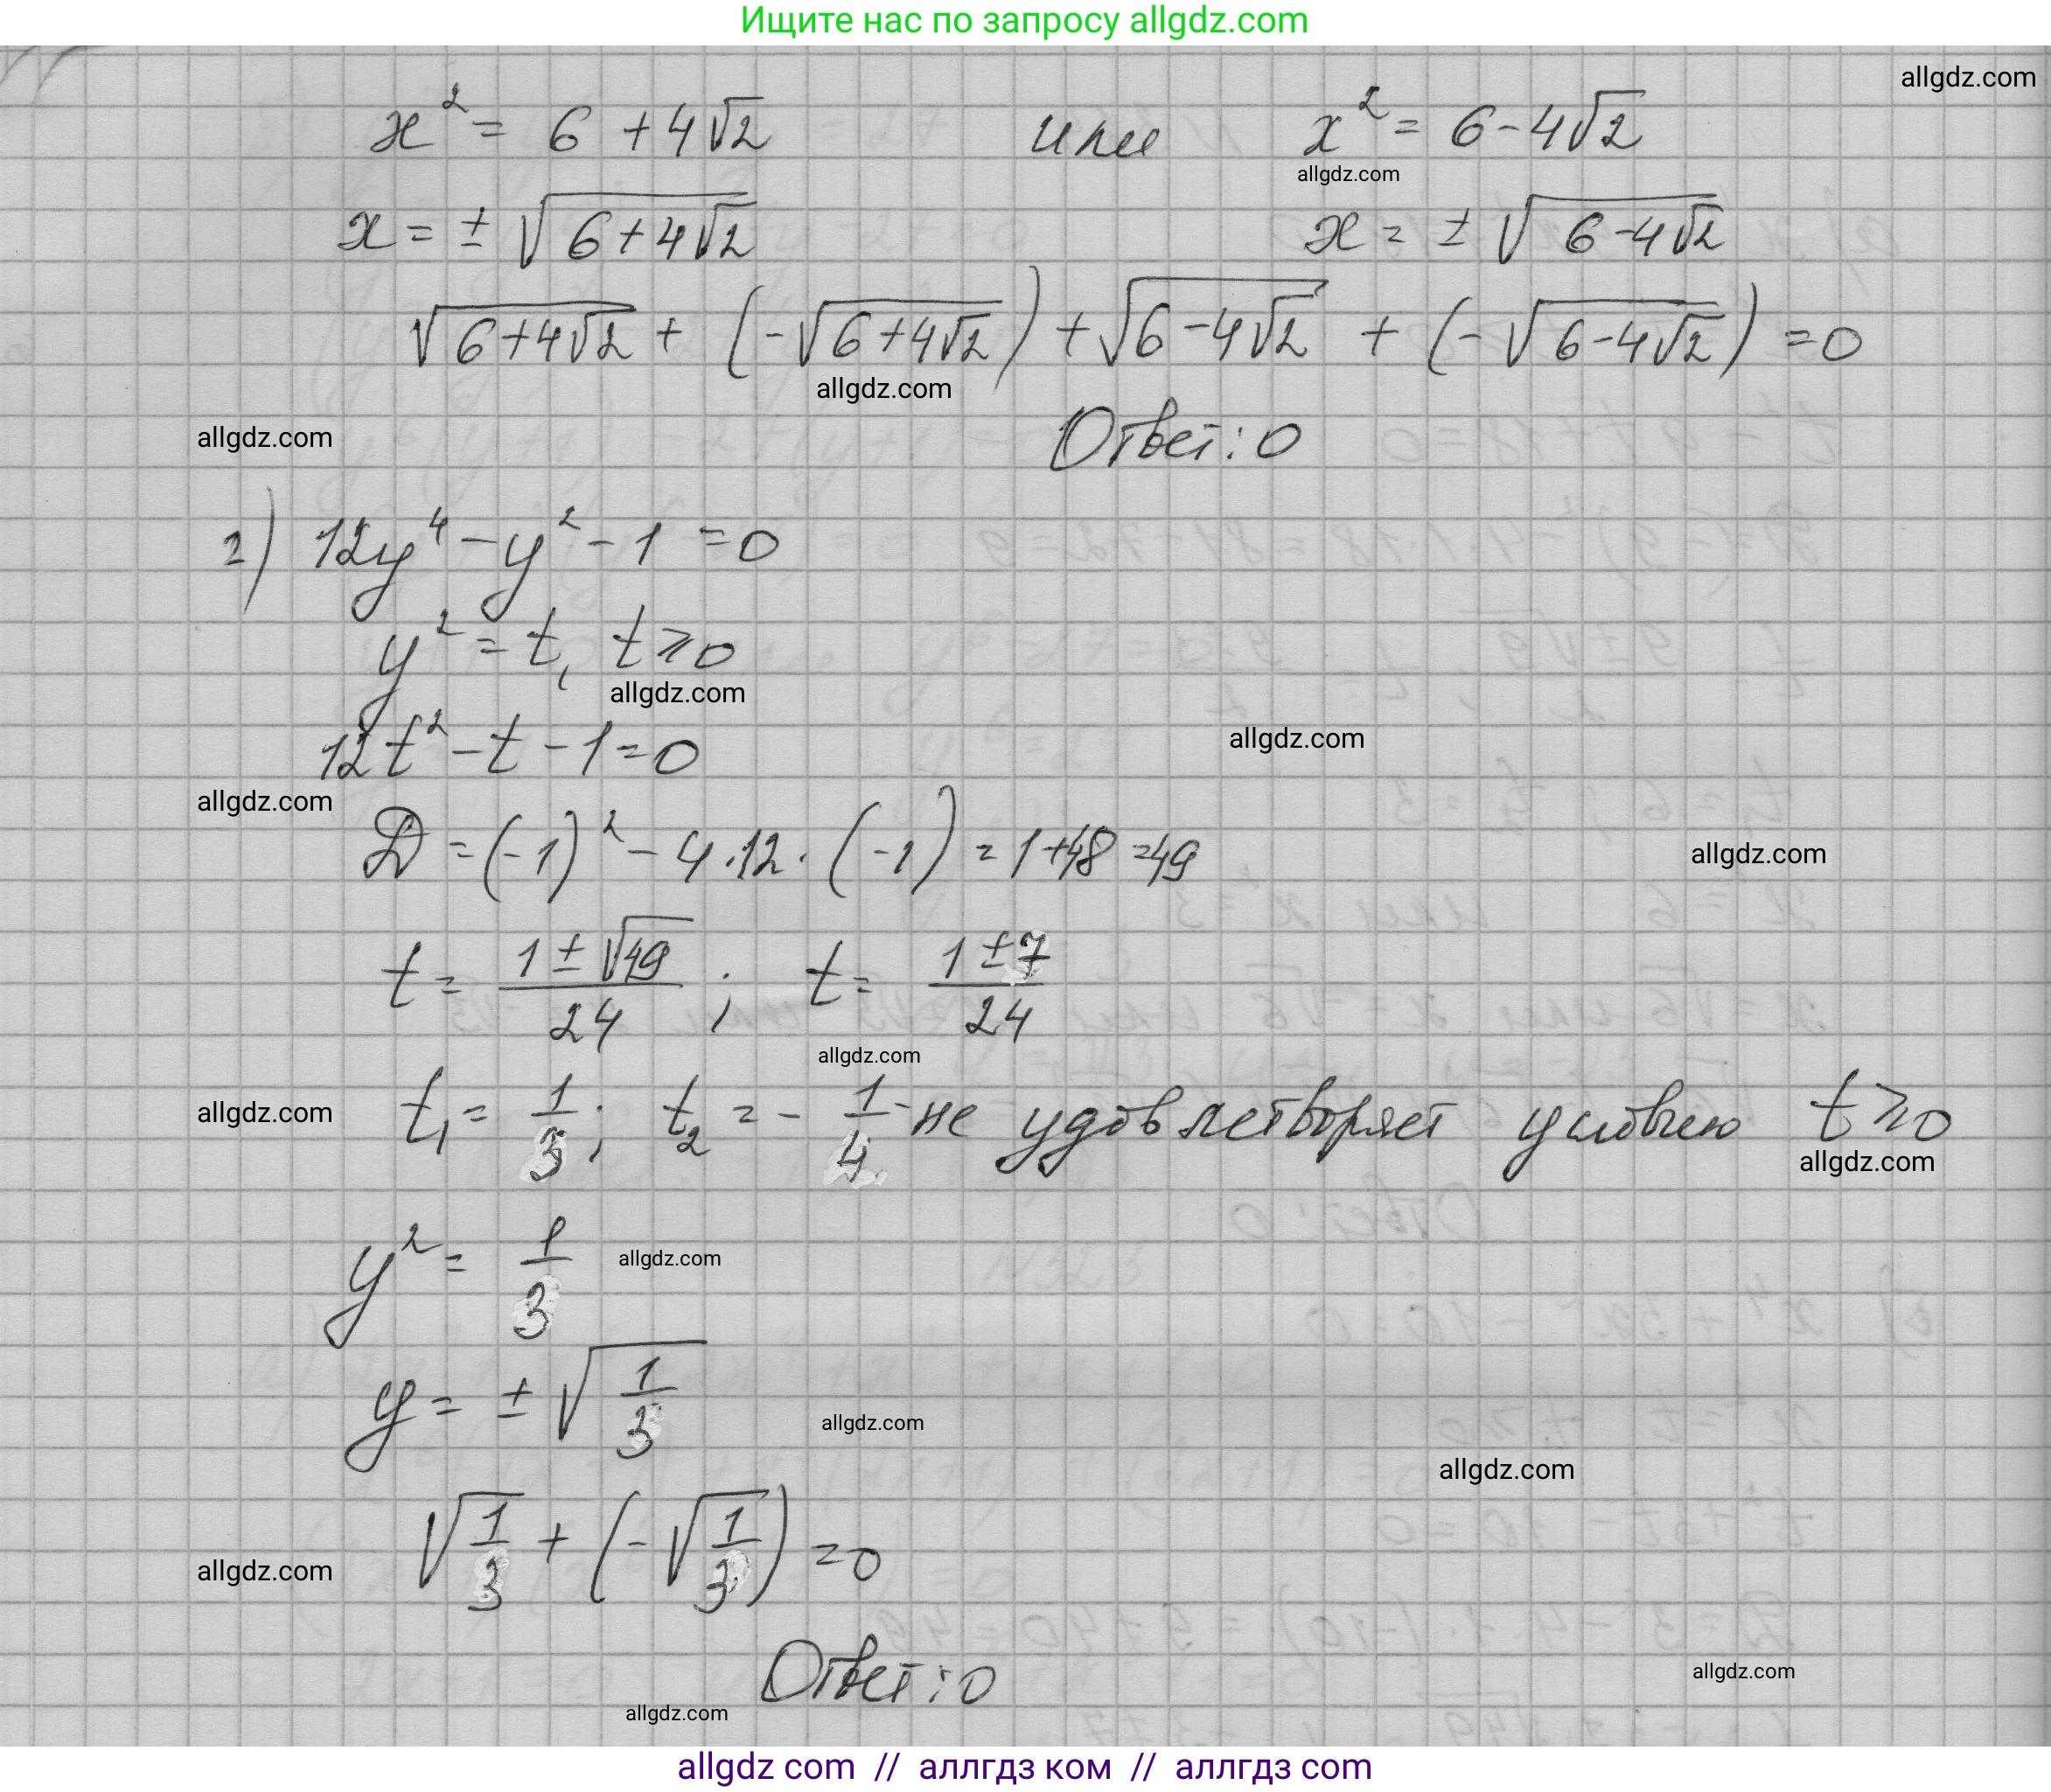 Ищите нас по запросу allgdz.com
allgdz.com
x² = 6 + 4√2 или x² = 6 - 4√2
allgdz.com
x = ± √(6 + 4√2) x = ± √(6 - 4√2)
√(6 + 4√2) + (-√(6 + 4√2)) + √(6 - 4√2) + (-√(6 - 4√2)) = 0
allgdz.com
allgdz.com
Ответ: 0
г) 12y⁴ - y² - 1 = 0
y² = t, t ⩾ 0
allgdz.com
allgdz.com
12t² - t - 1 = 0
allgdz.com
D = (-1)² - 4 · 12 · (-1) = 1 + 48 = 49
allgdz.com
t = (1 ± √49)/24 ; t = (1 ± 7)/24
allgdz.com
allgdz.com
t₁ = 1/3 ; t₂ = - 1/4 - не удовлетворяет условию t ⩾ 0
allgdz.com
y² = 1/3
allgdz.com
y = ± √(1/3)
allgdz.com
allgdz.com
√(1/3) + (-√(1/3)) = 0
allgdz.com
Ответ: 0
allgdz.com
allgdz.com
allgdz com // аллгдз ком // аллгдз com